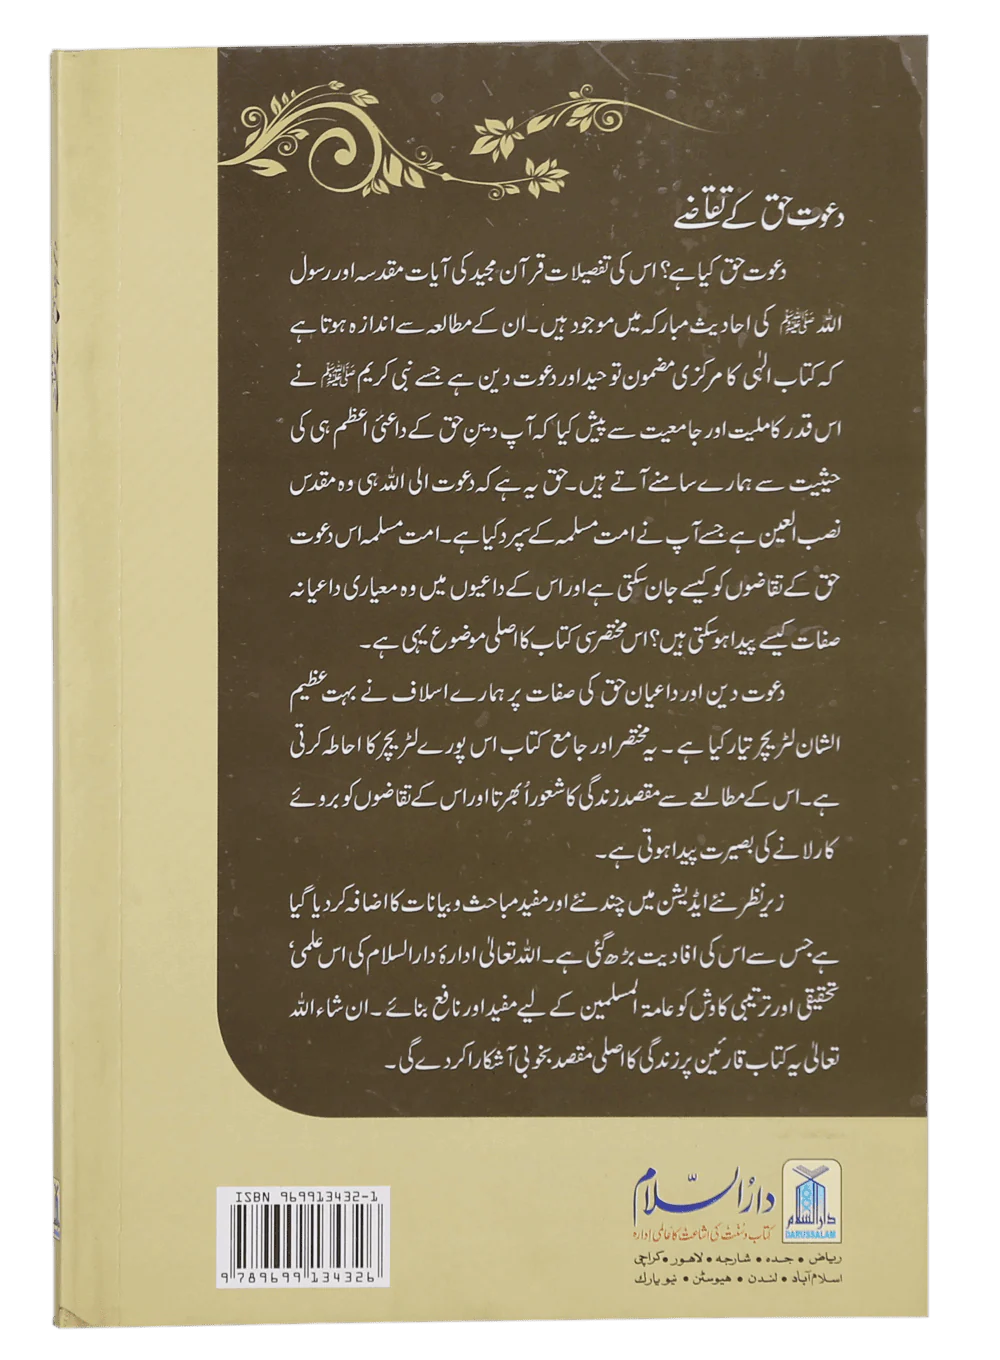 دعوتِ حق کے تقاضے
دعوت حق کیا ہے؟ اس کی تفصیلات قرآن مجید کی آیات مقدسہ اور رسول
اللہ ﷺ کی احادیث مبارکہ میں موجود ہیں۔ ان کے مطالعہ سے اندازہ ہوتا ہے
کہ کتاب الٰہی کا مرکزی مضمون توحید اور دعوت دین ہے جسے نبی کریم ﷺ نے
اس قدر کاملیت اور جامعیت سے پیش کیا کہ آپ دینِ حق کے داعئی اعظم ہی کی
حیثیت سے ہمارے سامنے آتے ہیں۔ حق یہ ہے کہ دعوت الی اللہ ہی وہ مقدس
نصب العین ہے جسے آپ نے امت مسلمہ کے سپرد کیا ہے۔ امت مسلمہ اس دعوت
حق کے تقاضوں کو کیسے جان سکتی ہے اور اس کے داعیوں میں وہ معیاری داعیانہ
صفات کیسے پیدا ہو سکتی ہیں؟ اس مختصر سی کتاب کا اصلی موضوع یہی ہے۔
دعوت دین اور داعیان حق کی صفات پر ہمارے اسلاف نے بہت عظیم
الشان لٹریچر تیار کیا ہے۔ یہ مختصر اور جامع کتاب اس پورے لٹریچر کا احاطہ کرتی
ہے۔ اس کے مطالعے سے مقصد زندگی کا شعور اُبھرتا اور اس کے تقاضوں کو بروئے
کار لانے کی بصیرت پیدا ہوتی ہے۔
زیر نظر نئے ایڈیشن میں چند نئے اور مفید مباحث و بیانات کا اضافہ کر دیا گیا
ہے جس سے اس کی افادیت بڑھ گئی ہے۔ اللہ تعالیٰ ادارۂ دارالسلام کی اس علمی'
تحقیقی اور ترتیبی کاوش کو عامۃ المسلمین کے لیے مفید اور نافع بنائے۔ ان شاء اللہ
تعالیٰ یہ کتاب قارئین پر زندگی کا اصلی مقصد بخوبی آشکارا کر دے گی۔
دارالسلام
DARUSSALAM
دارُالسّلام
کتاب و سُنّت کی اشاعت کا عالمی ادارہ
ریاض • جدہ • شارجہ • لاهور • کراچی
اسلام آباد • لندن • هیوسٹن • نیو یارك
ISBN 969913432-1
9 789699 134326